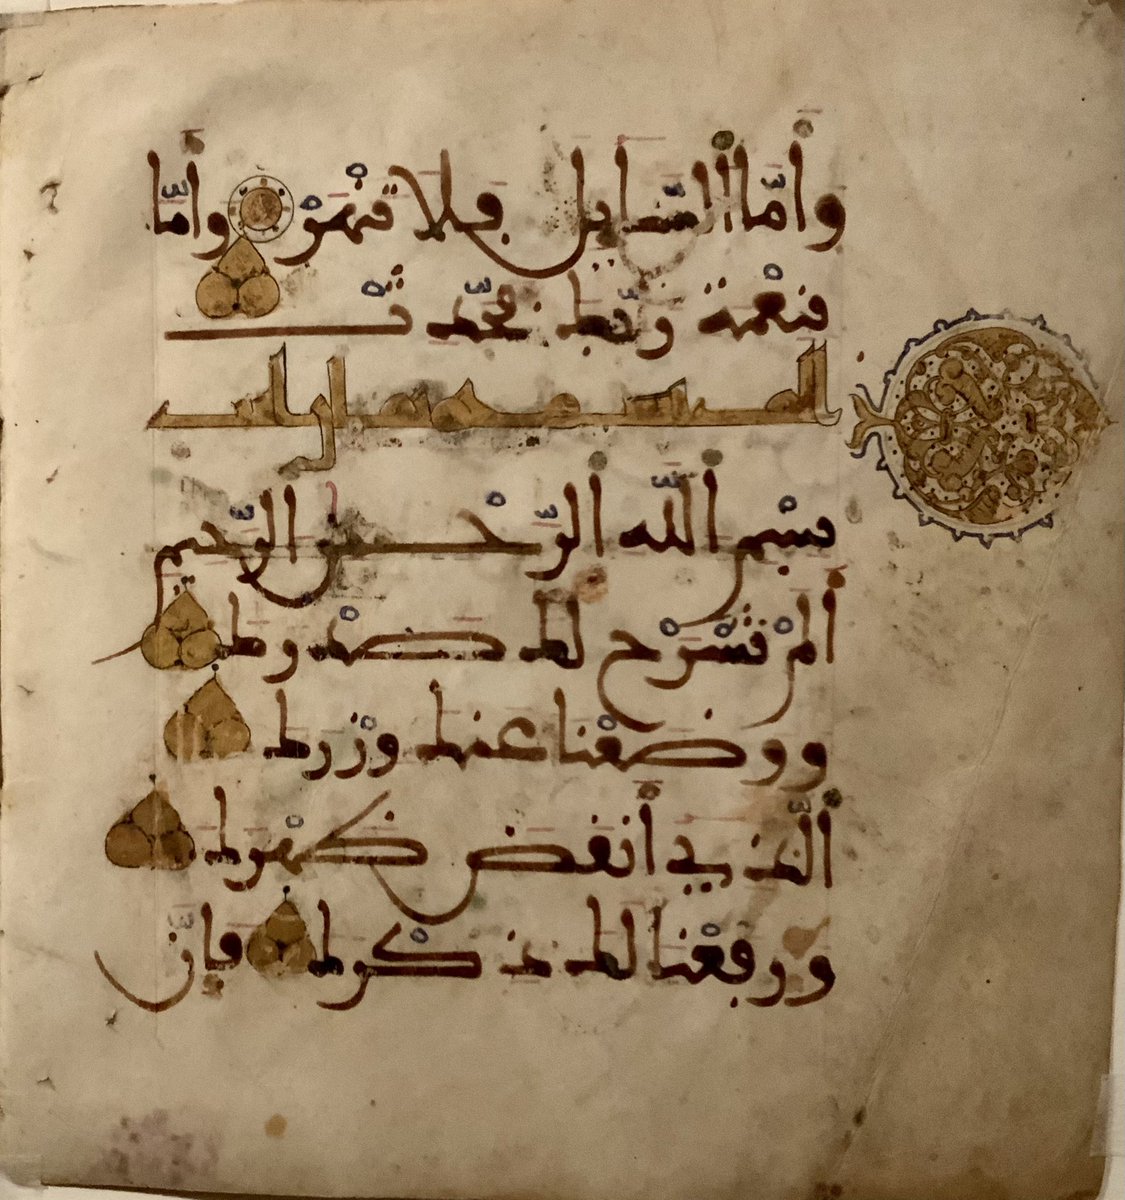 وَأَمَّا ٱلسَّايِلَ فَلَا تَنْهَرْ وَأَمَّا
بِنِعْمَةِ رَبِّكَ فَحَدِّثْ
بِسْمِ ٱللَّهِ ٱلرَّحْمَٰنِ ٱلرَّحِيمِ
أَلَمْ نَشْرَحْ لَكَ صَدْرَكَ
وَوَضَعْنَا عَنكَ وِزْرَكَ
ٱلَّذِي أَنقَضَ ظَهْرَكَ
وَرَفَعْنَا لَكَ ذِكْرَكَ فَإِنَّ